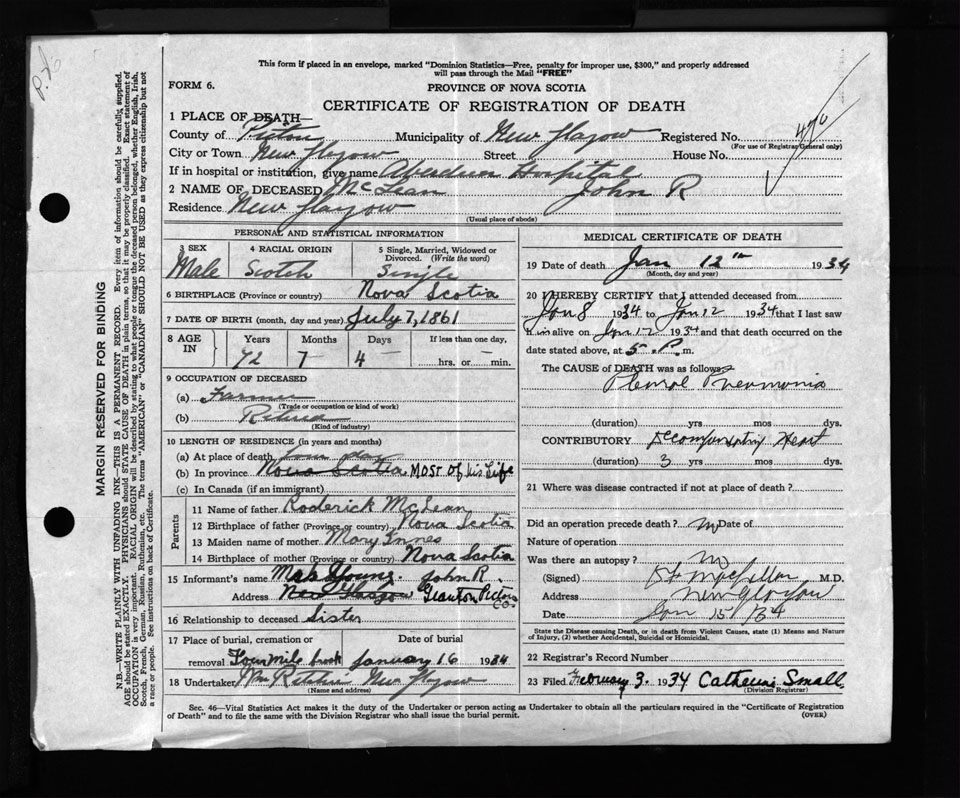 P. 76
This form if placed in an envelope, marked "Dominion Statistics—Free, penalty for improper use, $300," and properly addressed
will pass through the Mail "FREE"
FORM 6.
PROVINCE OF NOVA SCOTIA
CERTIFICATE OF REGISTRATION OF DEATH
1 PLACE OF DEATH—
County of Pictou Municipality of New Glasgow Registered No. 476
(For use of Registrar General only)
City or Town New Glasgow Street House No.
If in hospital or institution, give name Aberdeen Hospital
2 NAME OF DECEASED McLean John R
Residence New Glasgow
(Usual place of abode)
MARGIN RESERVED FOR BINDING
N.B.—WRITE PLAINLY WITH UNFADING INK—THIS IS A PERMANENT RECORD. Every item of information should be carefully supplied.
AGE should be stated EXACTLY. PHYSICIANS should STATE CAUSE OF DEATH in plain terms, so that it may be properly classified. Exact statement of
OCCUPATION is very important. RACIAL ORIGIN will be described by stating to what people or tongue the deceased person belonged, whether English, Irish,
Scotch, French, German, Russian, Ruthenian, etc. The terms "AMERICAN" or "CANADIAN" SHOULD NOT BE USED as they express citizenship but not
a race or people. See instructions on back of Certificate.
PERSONAL AND STATISTICAL INFORMATION
3 SEX 4 RACIAL ORIGIN 5 Single, Married, Widowed or
Divorced. (Write the word)
Male Scotch Single
6 BIRTHPLACE (Province or country) Nova Scotia
7 DATE OF BIRTH (month, day and year) July 7, 1861
8 AGE IN Years Months Days If less than one day,
72 7 4 — hrs. or — min.
9 OCCUPATION OF DECEASED
(a) Farmer
(Trade or occupation or kind of work)
(b) Retired
(Kind of industry)
10 LENGTH OF RESIDENCE (in years and months)
(a) At place of death four days
(b) In province Nova Scotia MOST OF his Life
(c) In Canada (if an immigrant)
Parents
11 Name of father Roderick McLean
12 Birthplace of father (Province or country) Nova Scotia
13 Maiden name of mother Mary Innes
14 Birthplace of mother (Province or country) Nova Scotia
15 Informant's name Mrs Young. John R.
Address New Glasgow Granton Pictou Co.
16 Relationship to deceased Sister
17 Place of burial, cremation or Date of burial
removal Four Mile brook January 16 1934
18 Undertaker Wm Ritchie New Glasgow
(Name and address)
MEDICAL CERTIFICATE OF DEATH
19 Date of death Jan 12th 1934
(Month, day and year)
20 I HEREBY CERTIFY that I attended deceased from
Jan 8 1934 to Jan 12 1934 that I last saw
him alive on Jan 12 1934 and that death occurred on
date stated above, at 5 P. m.
The CAUSE of DEATH was as follows:
Pneumonia
(duration) yrs mos dys.
CONTRIBUTORY Decompensating Heart
(duration) 3 yrs mos dys.
21 Where was disease contracted if not at place of death?
Did an operation precede death? no Date of
Nature of operation
Was there an autopsy? no
(Signed) M.D.
Address New Glasgow
Date Jan 15/34
State the Disease causing Death, or in death from Violent Causes, state (1) Means and Nature
of Injury, (2) whether Accidental, Suicidal or Homicidal.
22 Registrar's Record Number
23 Filed February 3. 1934 Catherine Small
(Division Registrar)
Sec. 46—Vital Statistics Act makes it the duty of the Undertaker or person acting as Undertaker to obtain all the particulars required in the "Certificate of Registration
of Death" and to file the same with the Division Registrar who shall issue the burial permit.
(OVER)